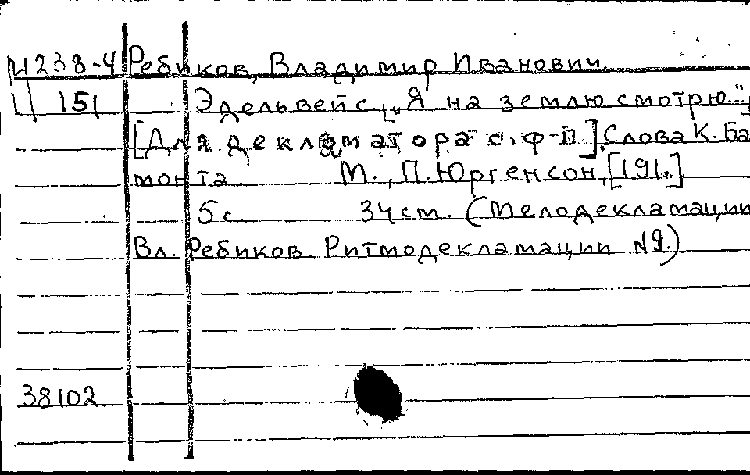 И238-4 Ребиков, Владимир Иванович.
151 Эдельвейс, „Я на землю смотрю..."
[Для декламатора с ф-п]. Слова К. Ба
монта М., П. Юргенсон, [191.]
5 с. 34 см. (Мелодекламации
Вл. Ребиков. Ритмодекламации №9.)
38102